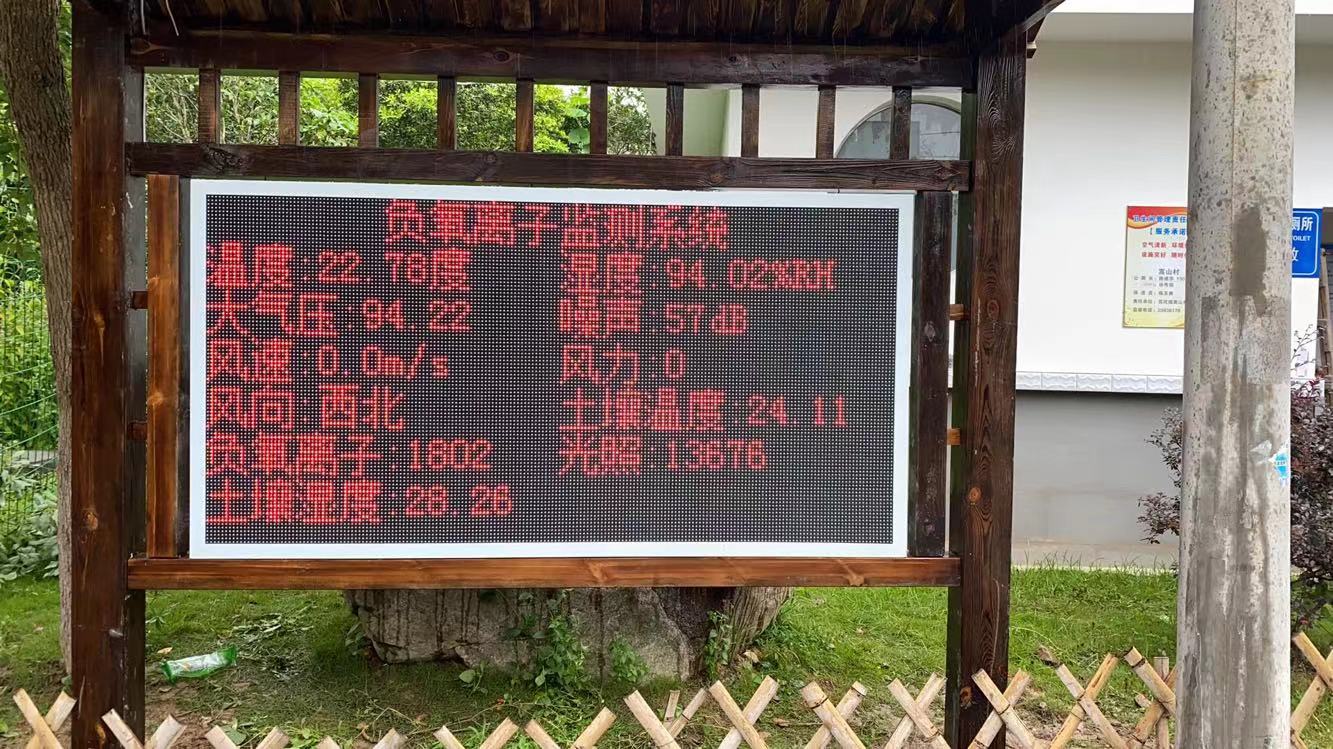 负氧离子监测系统
温度:22.76
湿度:94.92%RH
大气压:94.
噪声:57dB
风速:0.0m/s
风力:0
风向:西北
土壤温度:24.11
负氧离子:1802
光照:13676
土壤湿度:28.26
卫生间管理责任
【服务承诺
空气清新 环境
设施完好 随时
嵩山村
厕所
TOILET